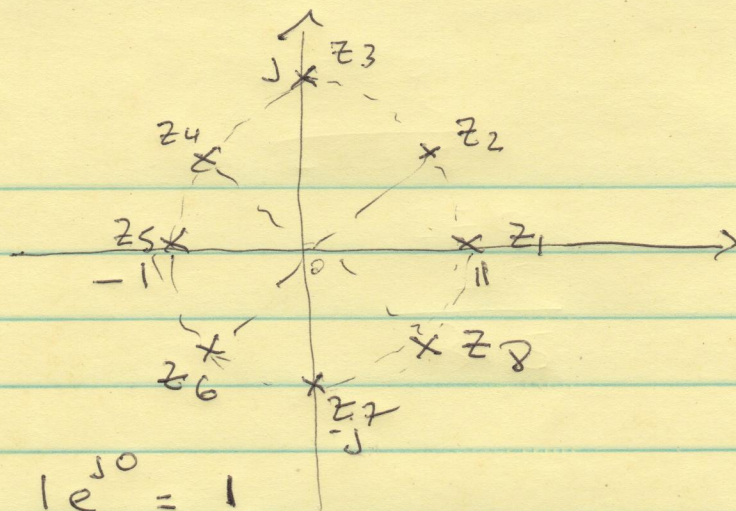 j z3
z4 z2
z5 z1
-1 0 1
z6 z8
z7
-j
1 e^j0 = 1